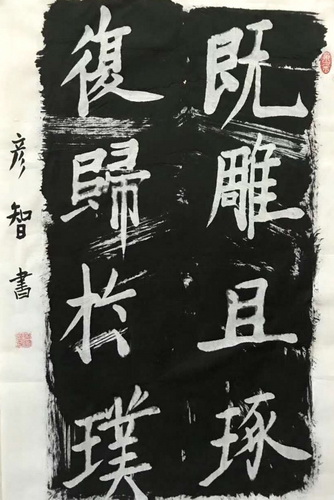 既雕且琢
復歸於璞
彦智書